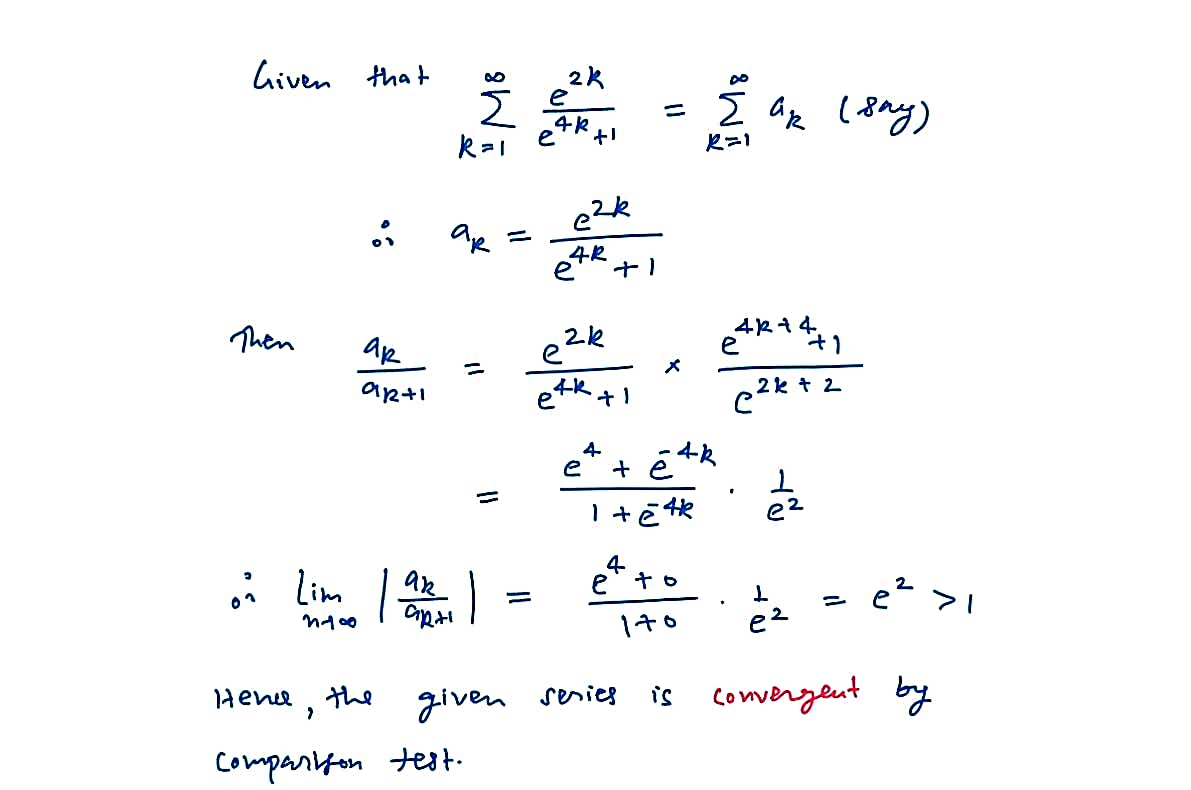 Given that ∑_{k=1}^{∞} e^{2k}/(e^{4k}+1) = ∑_{k=1}^{∞} a_k (say)
∴ a_k = e^{2k}/(e^{4k}+1)
Then a_k/a_{k+1} = e^{2k}/(e^{4k}+1) × (e^{4k+4}+1)/e^{2k+2}
= (e^4 + e^{-4k})/(1 + e^{-4k}) · 1/e^2
∴ Lim_{n→∞} |a_k/a_{k+1}| = (e^4+0)/(1+0) · 1/e^2 = e^2 > 1
Hence, the given series is convergent by
comparison test.